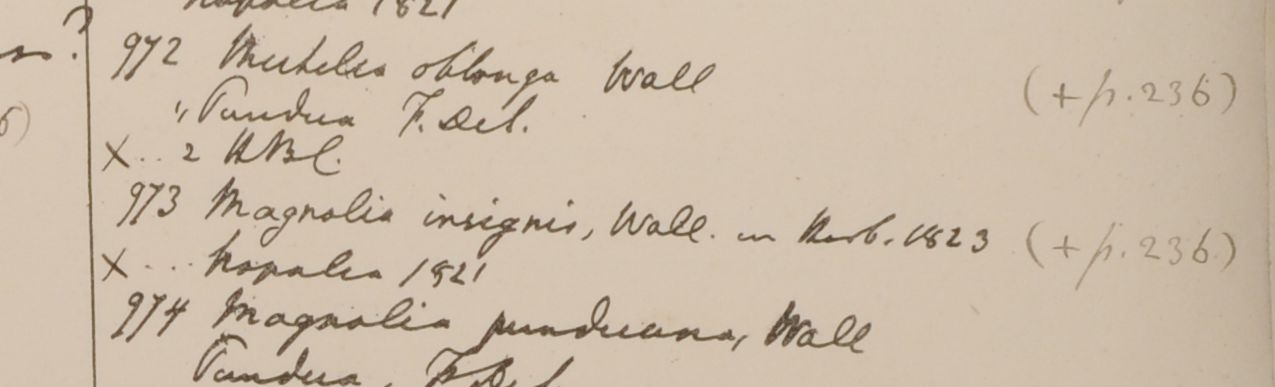 Napalia 1821
972 Michelia oblonga Wall (+p.236)
" Pundua F. De S.
X .. 2 HBC.
973 Magnolia insignis, Wall. in Herb. 1823 (+p.236)
X ... Napalia 1821
974 Magnolia punduana, Wall
Pundua,